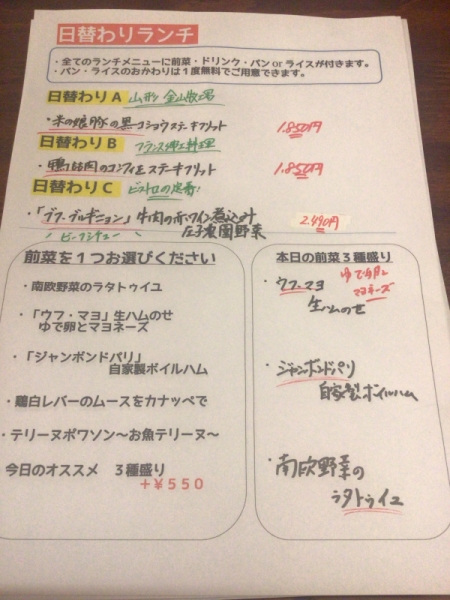 日替わりランチ
・全てのランチメニューに前菜・ドリンク・パンorライスが付きます。
・パン・ライスのおかわりは１度無料でご用意できます。
日替わりA 山形 金山牧場
・米の娘豚の黒コショウステーキフリット 1.850円
日替わりB フランス郷土料理
・鴨モモ肉のコンフィとステーキフリット 1.850円
日替わりC ビストロの定番!
・「ブフ・ブルギニョン」牛肉の赤ワイン煮込み 2.490円
ビーフシチュー 庄子農園野菜
前菜を１つお選びください
・南欧野菜のラタトゥイユ
・「ウフ・マヨ」生ハムのせ
ゆで卵とマヨネーズ
・「ジャンボンドパリ」
自家製ボイルハム
・鶏白レバーのムースをカナッペで
・テリーヌポワソン～お魚テリーヌ～
今日のオススメ ３種盛り
＋￥５５０
本日の前菜３種盛り
・ウフ・マヨ ゆで卵と
マヨネーズ
生ハムのせ
・ジャンボンドパリ
自家製ボイルハム
・南欧野菜の
ラタトゥイユ